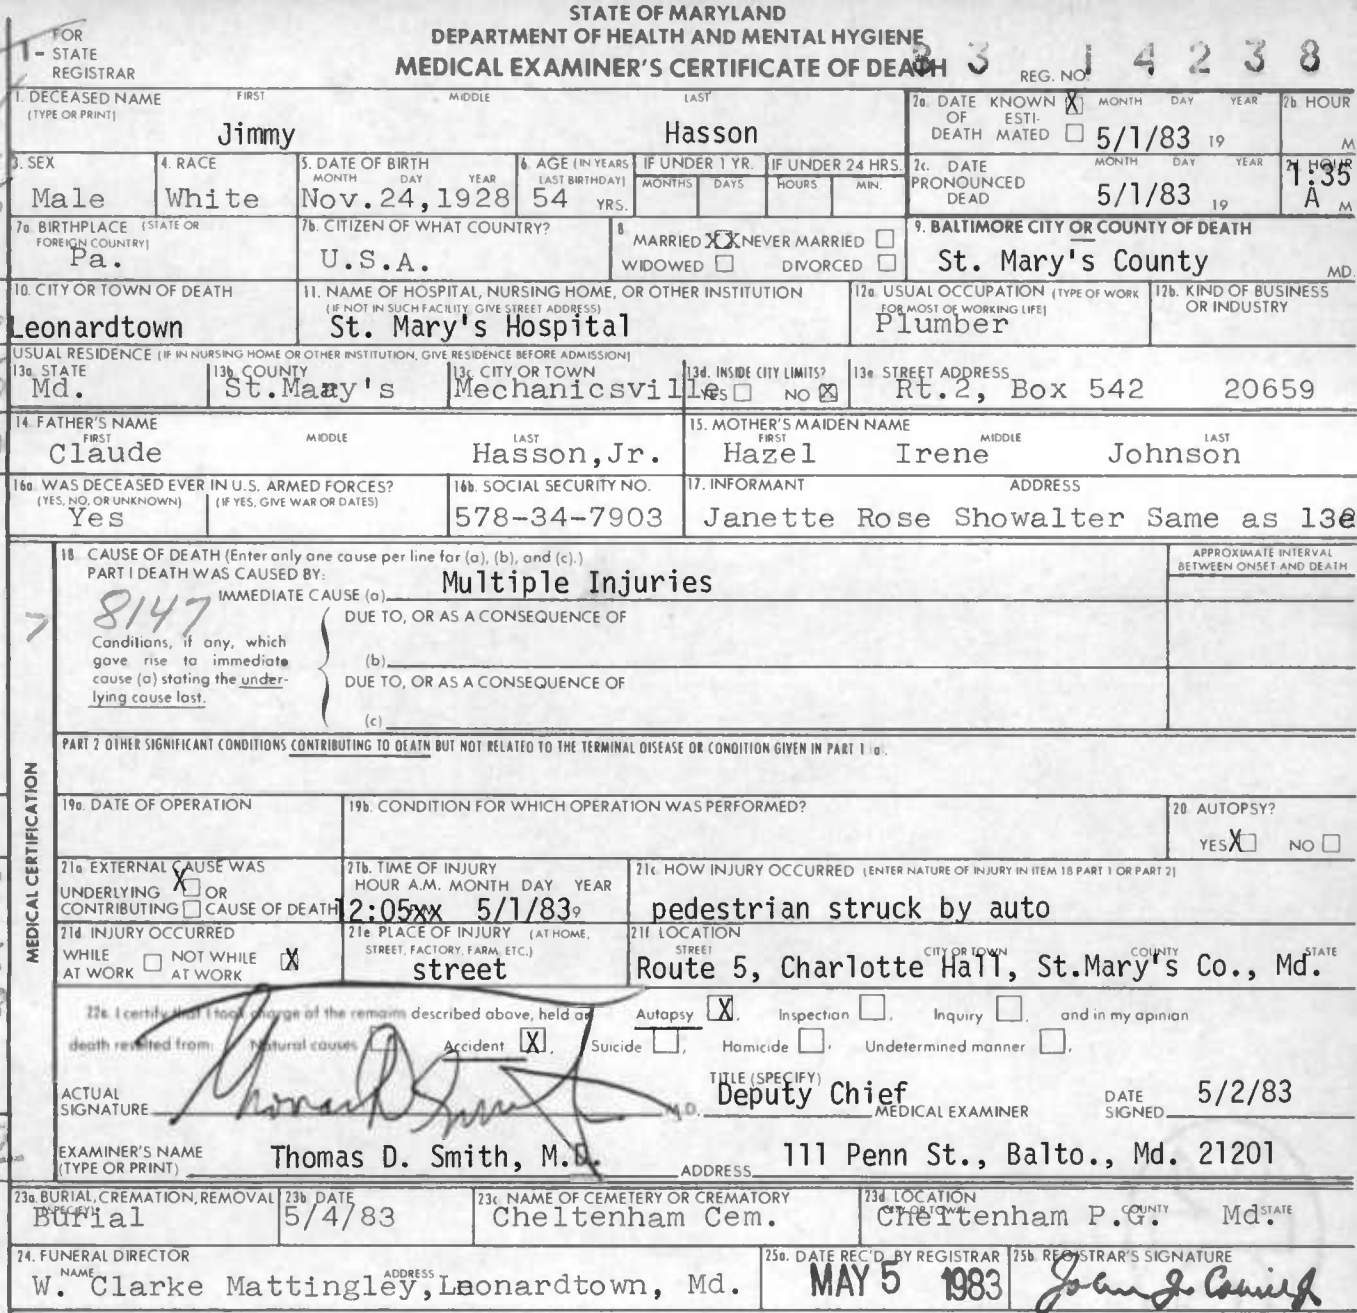 STATE OF MARYLAND
DEPARTMENT OF HEALTH AND MENTAL HYGIENE
MEDICAL EXAMINER'S CERTIFICATE OF DEATH
FOR
1- STATE
REGISTRAR
REG. NO. 83 14238
1. DECEASED NAME FIRST MIDDLE LAST
(TYPE OR PRINT)
Jimmy Hasson
2a. DATE KNOWN X MONTH DAY YEAR 2b. HOUR
OF ESTI-
DEATH MATED 5/1/83 19 M
3. SEX
Male
4. RACE
White
5. DATE OF BIRTH
MONTH DAY YEAR
Nov.24,1928
6. AGE (IN YEARS
LAST BIRTHDAY)
54 YRS.
IF UNDER 1 YR.
MONTHS DAYS
IF UNDER 24 HRS.
HOURS MIN.
2c. DATE MONTH DAY YEAR HOUR
PRONOUNCED
DEAD 5/1/83 19 1:35
A M
7a. BIRTHPLACE (STATE OR
FOREIGN COUNTRY)
Pa.
7b. CITIZEN OF WHAT COUNTRY?
U.S.A.
8
MARRIED XX NEVER MARRIED
WIDOWED DIVORCED
9. BALTIMORE CITY OR COUNTY OF DEATH
St. Mary's County MD.
10. CITY OR TOWN OF DEATH
Leonardtown
11. NAME OF HOSPITAL, NURSING HOME, OR OTHER INSTITUTION
(IF NOT IN SUCH FACILITY, GIVE STREET ADDRESS)
St. Mary's Hospital
12a. USUAL OCCUPATION (TYPE OF WORK
FOR MOST OF WORKING LIFE)
Plumber
12b. KIND OF BUSINESS
OR INDUSTRY
USUAL RESIDENCE (IF IN NURSING HOME OR OTHER INSTITUTION, GIVE RESIDENCE BEFORE ADMISSION)
13a. STATE
Md.
13b. COUNTY
St.Mary's
13c. CITY OR TOWN
Mechanicsville
13d. INSIDE CITY LIMITS?
YES NO X
13e STREET ADDRESS
Rt.2, Box 542 20659
14. FATHER'S NAME
FIRST MIDDLE LAST
Claude Hasson,Jr.
15. MOTHER'S MAIDEN NAME
FIRST MIDDLE LAST
Hazel Irene Johnson
16a. WAS DECEASED EVER IN U.S. ARMED FORCES?
(YES, NO, OR UNKNOWN) (IF YES, GIVE WAR OR DATES)
Yes
16b. SOCIAL SECURITY NO.
578-34-7903
17. INFORMANT ADDRESS
Janette Rose Showalter Same as 13e
MEDICAL CERTIFICATION
18 CAUSE OF DEATH (Enter only one cause per line for (a), (b), and (c).)
PART I DEATH WAS CAUSED BY:
IMMEDIATE CAUSE (a) Multiple Injuries
APPROXIMATE INTERVAL
BETWEEN ONSET AND DEATH
8147
Conditions, if any, which
gave rise to immediate
cause (a) stating the under-
lying cause last.
DUE TO, OR AS A CONSEQUENCE OF
(b)
DUE TO, OR AS A CONSEQUENCE OF
(c)
PART 2 OTHER SIGNIFICANT CONDITIONS CONTRIBUTING TO DEATH BUT NOT RELATED TO THE TERMINAL DISEASE OR CONDITION GIVEN IN PART 1 (a).
19a. DATE OF OPERATION
19b. CONDITION FOR WHICH OPERATION WAS PERFORMED?
20 AUTOPSY?
YES X NO
21a EXTERNAL CAUSE WAS
UNDERLYING X OR
CONTRIBUTING CAUSE OF DEATH
21b. TIME OF INJURY
HOUR A.M. MONTH DAY YEAR
12:05xx 5/1/83
21c HOW INJURY OCCURRED (ENTER NATURE OF INJURY IN ITEM 18 PART 1 OR PART 2)
pedestrian struck by auto
21d INJURY OCCURRED
WHILE NOT WHILE X
AT WORK AT WORK
21e PLACE OF INJURY (AT HOME,
STREET, FACTORY, FARM, ETC.)
street
21f LOCATION
STREET CITY OR TOWN COUNTY STATE
Route 5, Charlotte Hall, St.Mary's Co., Md.
22a. I certify that I took charge of the remains described above, held an Autopsy X, Inspection , Inquiry , and in my opinion
death resulted from: Natural causes Accident X, Suicide , Homicide , Undetermined manner ,
ACTUAL
SIGNATURE Thomas D Smith M.D.
TITLE (SPECIFY)
Deputy Chief MEDICAL EXAMINER
DATE
SIGNED 5/2/83
EXAMINER'S NAME
(TYPE OR PRINT) Thomas D. Smith, M.D.
ADDRESS 111 Penn St., Balto., Md. 21201
23a. BURIAL, CREMATION, REMOVAL
(SPECIFY)
Burial
23b. DATE
5/4/83
23c. NAME OF CEMETERY OR CREMATORY
Cheltenham Cem.
23d. LOCATION
CITY OR TOWN COUNTY STATE
Cheltenham P.G. Md.
24. FUNERAL DIRECTOR
NAME ADDRESS
W. Clarke Mattingley,Leonardtown, Md.
25a. DATE REC'D. BY REGISTRAR
MAY 5 1983
25b. REGISTRAR'S SIGNATURE